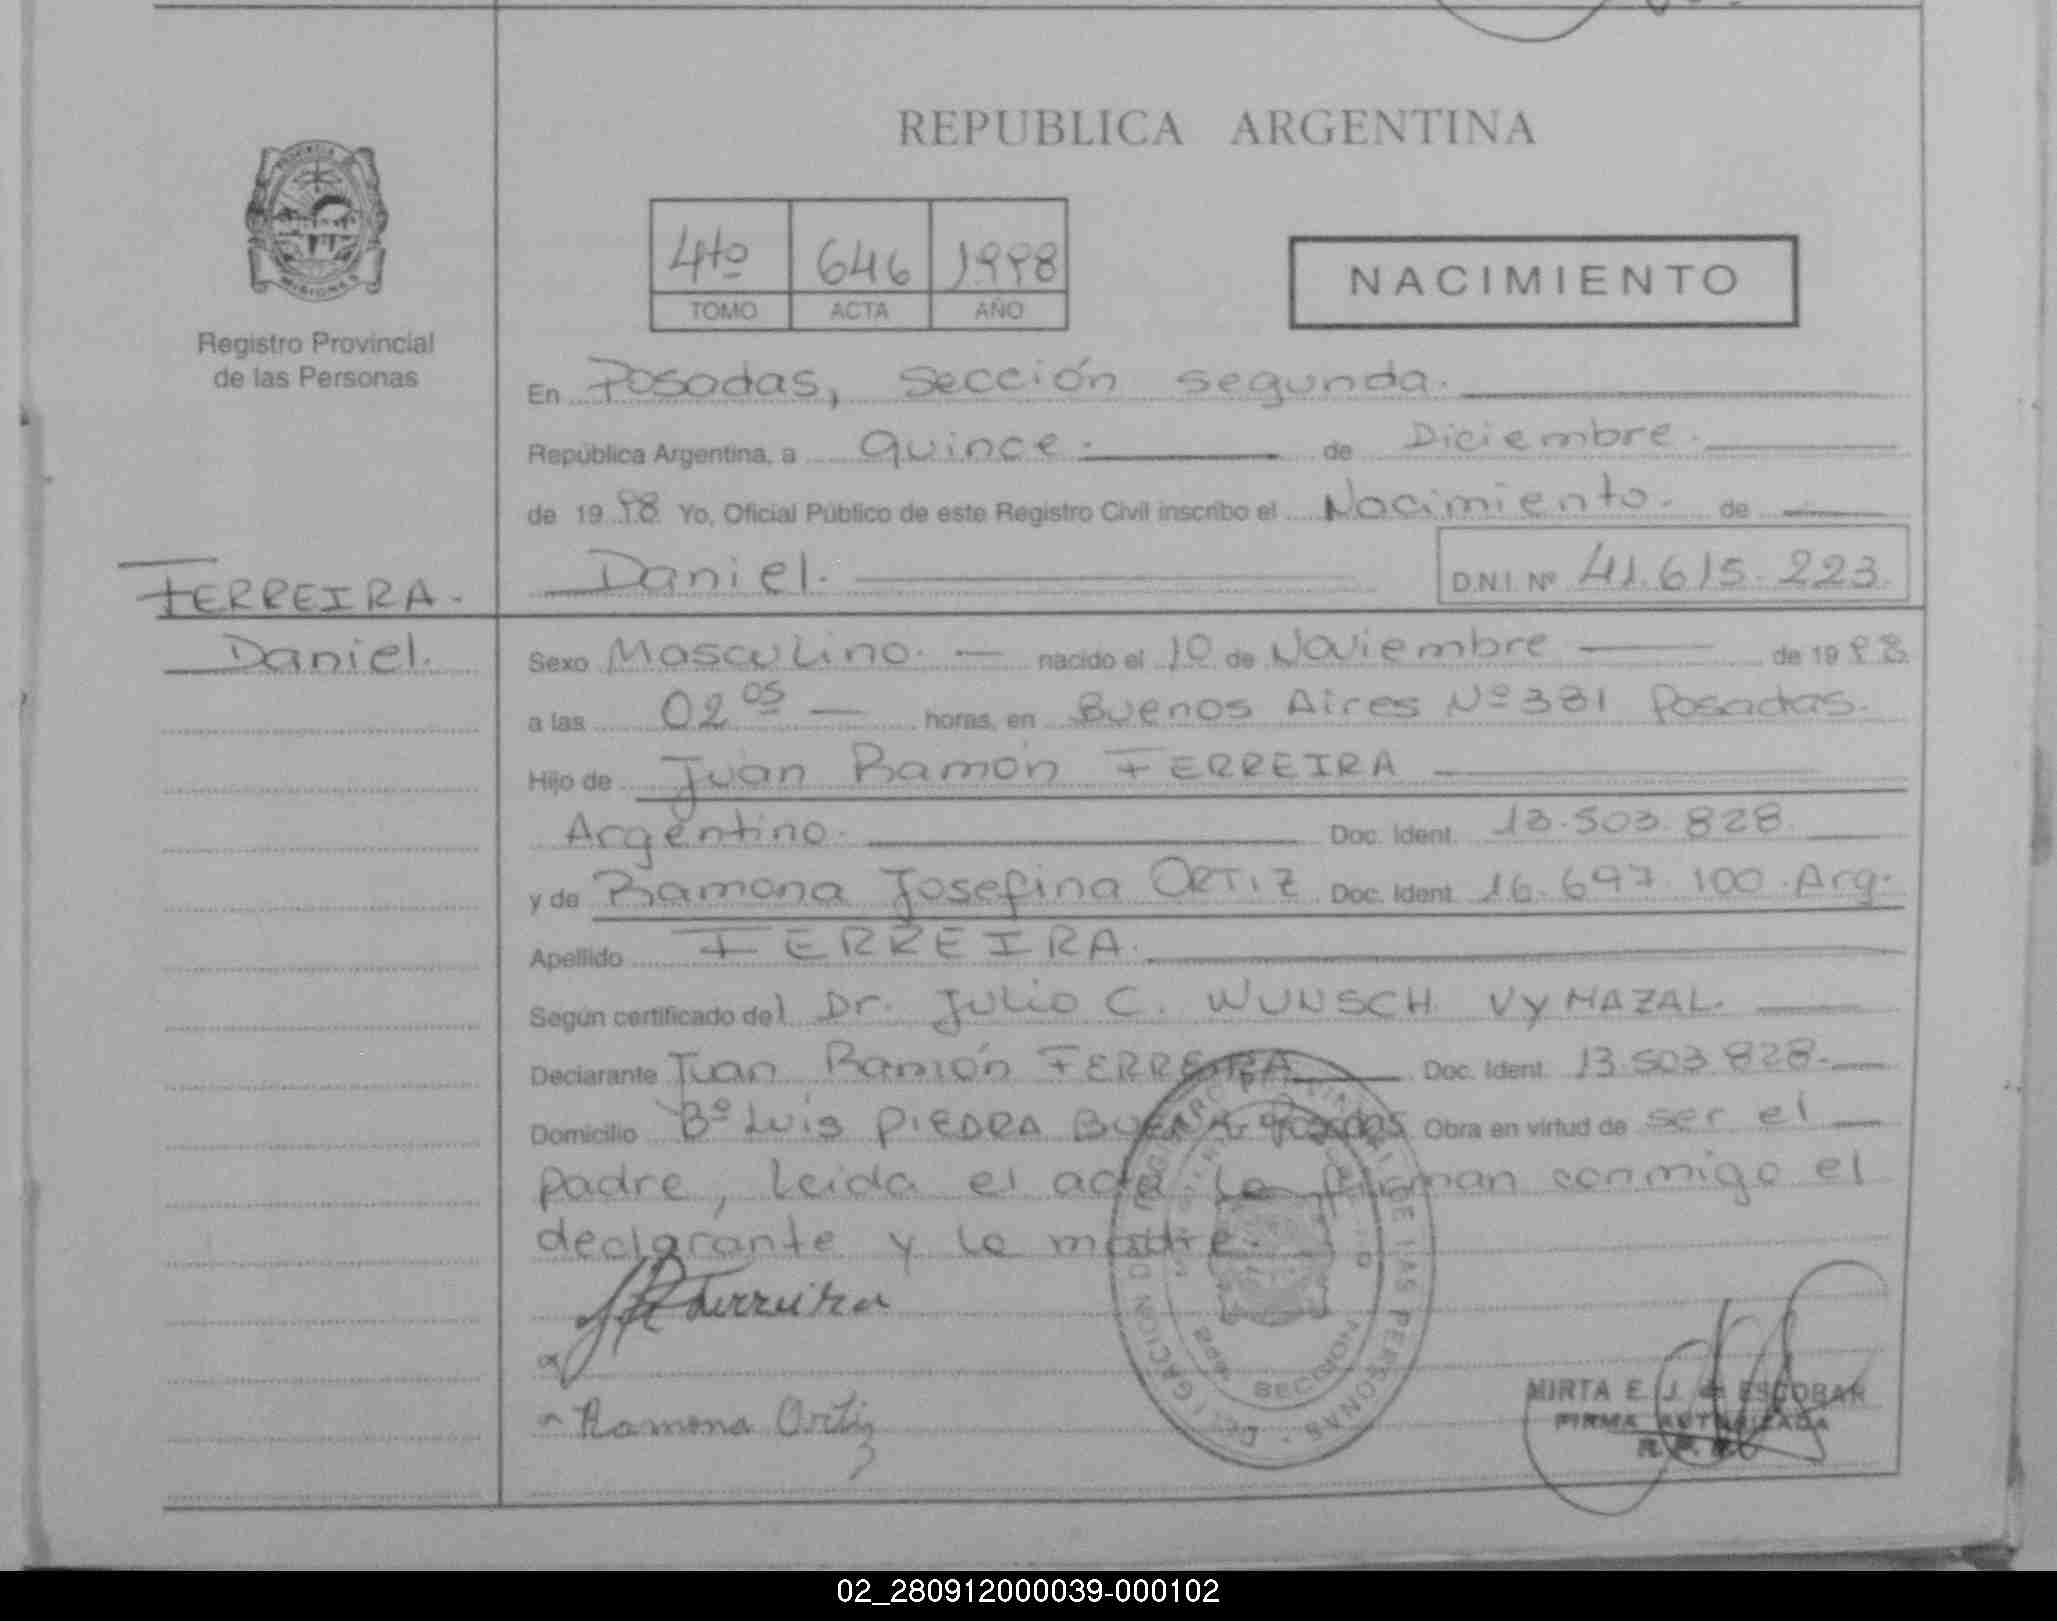 REPUBLICA ARGENTINA
PROVINCIA
MISIONES
Registro Provincial
de las Personas
4to 646 1998
TOMO ACTA AÑO
NACIMIENTO
En Posadas, sección segunda.
República Argentina, a quince. de Diciembre.
de 1998 Yo, Oficial Público de este Registro Civil inscribo el Nacimiento. de
Daniel. D.N.I. Nº 41.615.223.
FERREIRA.
Daniel.
Sexo Masculino. nacido el 10 de Noviembre de 1998
a las 02 05 horas, en Buenos Aires Nº 381 Posadas.
Hijo de Juan Ramón FERREIRA
Argentino. Doc. Ident. 13.503.828.
y de Ramona Josefina ORTIZ Doc. Ident. 16.697.100. Arg.
Apellido FERREIRA.
Según certificado del Dr. Julio C. WUNSCH VYMAZAL.
Declarante Juan Ramón FERREIRA Doc. Ident. 13.503.828.
Domicilio Bº Luis PIEDRA BUENA Posadas Obra en virtud de ser el
padre, leida el acta la firman conmigo el
declarante y la madre.
JR Ferreira
Ramona Ortiz
DE LAS PERSONAS
MIRTA E. J. de ESCOBAR
FIRMA AUTORIZADA
02_280912000039-000102